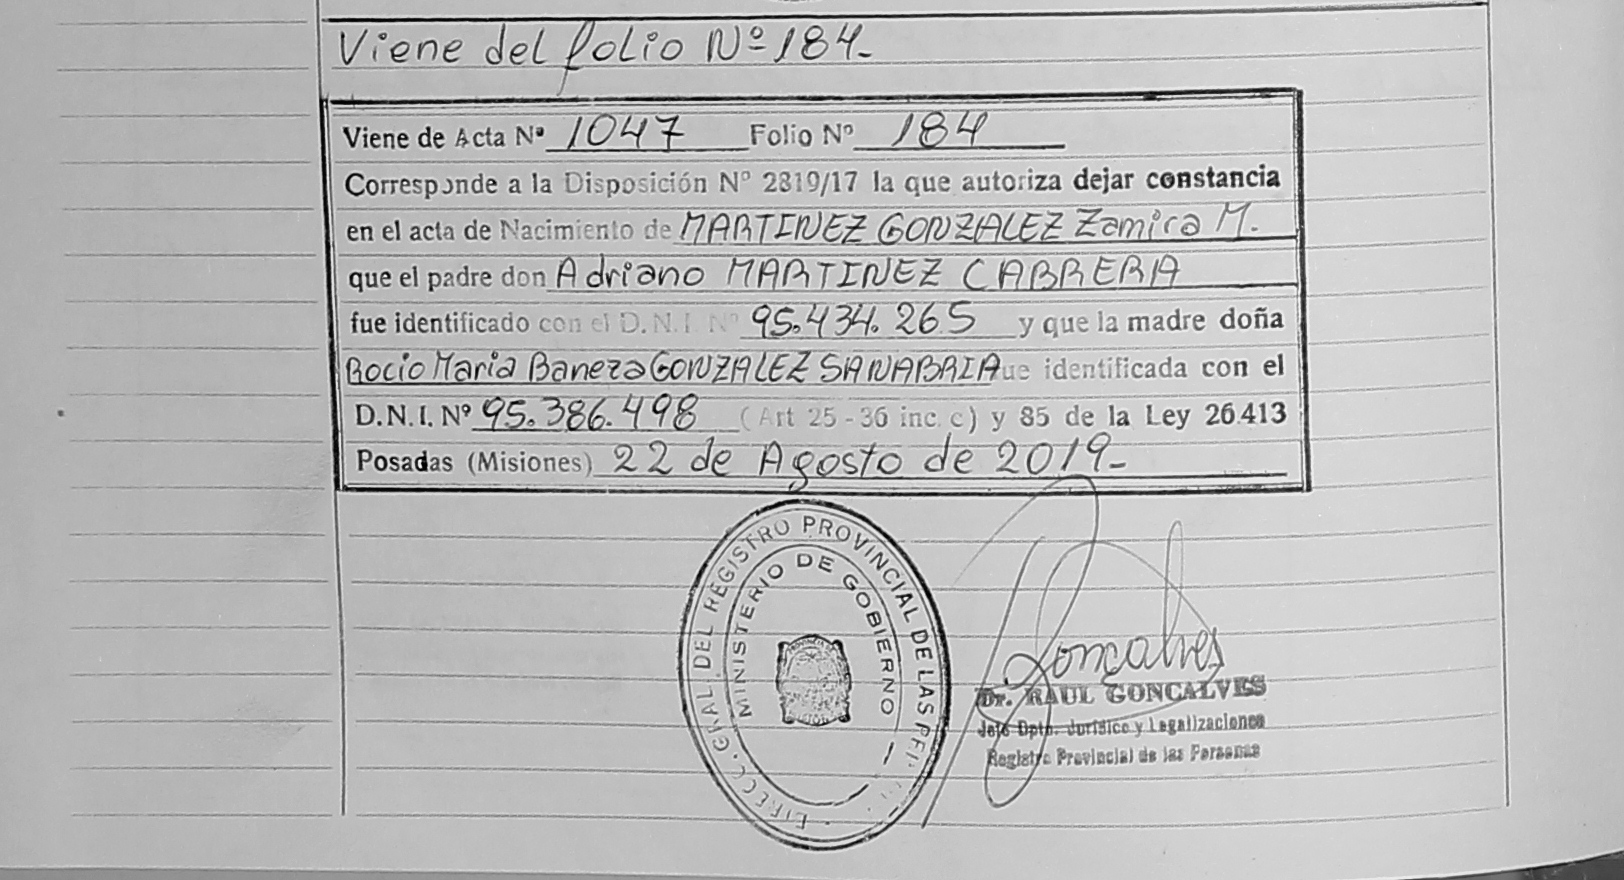 Viene del folio Nº 184-
Viene de Acta Nº 1047 Folio Nº 184
Corresponde a la Disposición Nº 2819/17 la que autoriza dejar constancia
en el acta de Nacimiento de MARTINEZ GONZALEZ Zamira M.
que el padre don Adriano MARTINEZ CABRERA
fue identificado con el D.N.I. Nº 95.434.265 y que la madre doña
Rocio Maria Baneza GONZALEZ SANABRIA fue identificada con el
D.N.I. Nº 95.386.498 (Art 25-36 inc. c) y 85 de la Ley 26.413
Posadas (Misiones) 22 de Agosto de 2019-
DIRECC. GRAL. DEL REGISTRO PROVINCIAL DE LAS
MINISTERIO DE GOBIERNO
Goncalves
Dr. RAUL GONCALVES
Jefe Dpto. Jurídico y Legalizaciones
Registro Provincial de las Personas